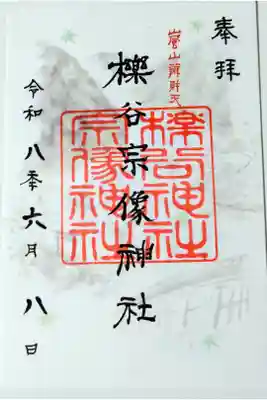 奉拝
嵐山辨財天
櫟谷宗像神社
櫟谷神社
宗像神社
令和八季六月八日